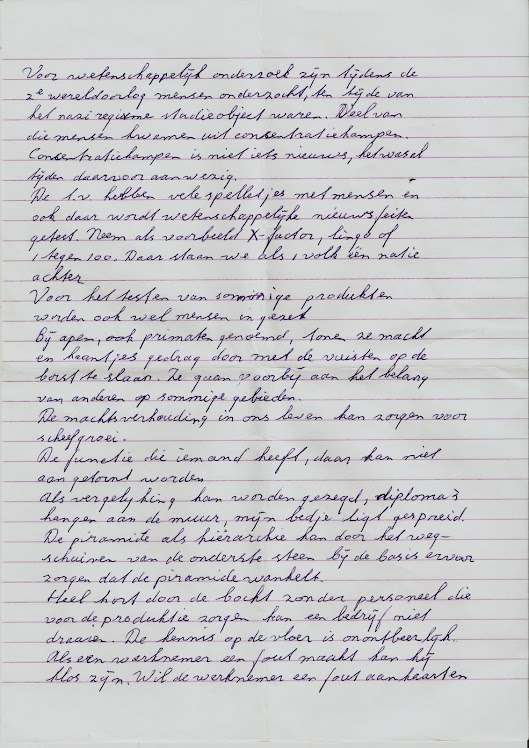 Voor wetenschappelijk onderzoek zijn tijdens de
2e wereldoorlog mensen onderzocht, ten tijde van
het nazi regieme studieobject waren. Deel van
die mensen kwamen uit consentratiekampen.
Consentratiekampen is niet iets nieuws, het was al
tijden daarvoor aanwezig.
De t.v. hebben vele spelletjes met mensen en
ook daar wordt wetenschappelijke nieuws feiten
getest. Neem als voorbeeld X-factor, lingo of
1 tegen 100. Daar staan we als 1 volk één natie
achter
Voor het testen van sommige produkten
worden ook wel mensen in gezet
Bij apen, ook primaten genoemd, tonen ze macht
en haantjes gedrag door met de vuisten op de
borst te slaan. Ze gaan voorbij aan het belang
van anderen op sommige gebieden.
De machtsverhouding in ons leven kan zorgen voor
scheefgroei.
De functie die iemand heeft, daar kan niet
aan getornt worden
Als vergelyking kan worden gezegd, diploma's
hangen aan de muur, mijn bedje ligt gespreid.
De piramide als hiërarchie kan door het weg-
schuiven van de onderste steen bij de basis ervoor
zorgen dat de piramide wankelt.
Heel kort door de bocht zonder personeel die
voor de produktie zorgen kan een bedrijf niet
draaien. De kennis op de vloer is onontbeerlijk.
Als een werknemer een fout maakt kan hij
klos zijn. Wil de werknemer een fout aankaarten